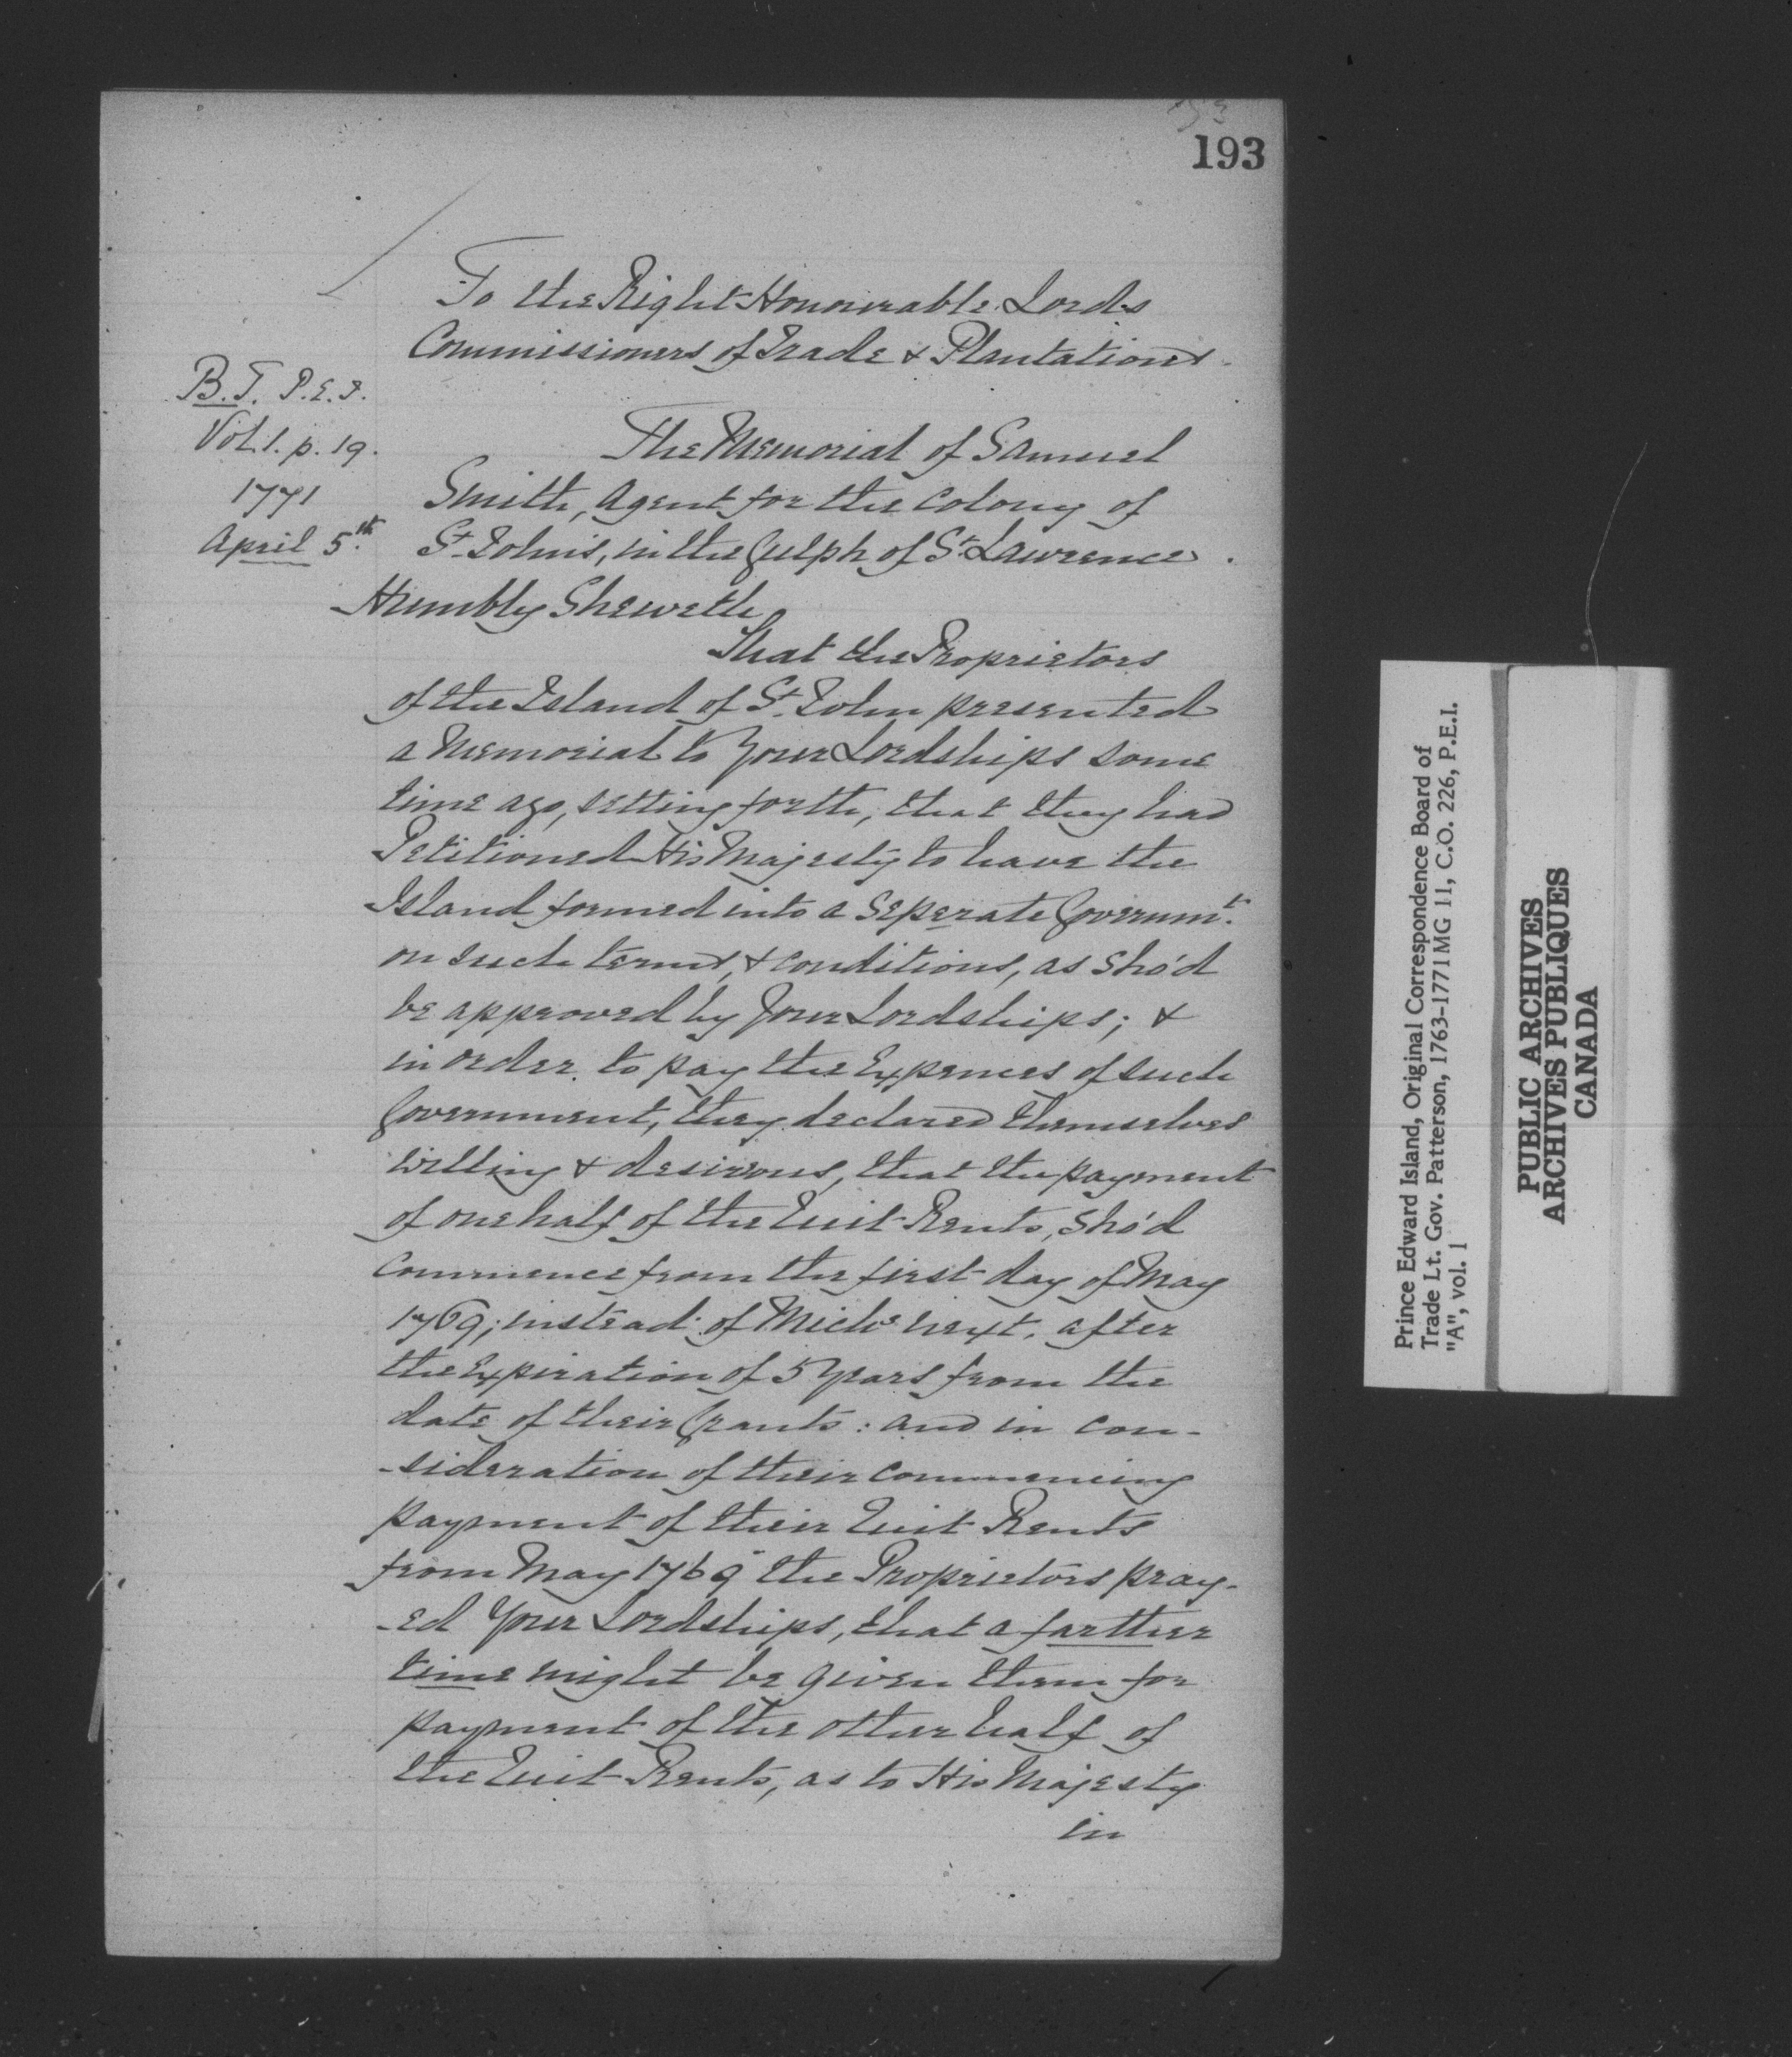 193
To the Right Honourable Lords
Commissioners of Trade & Plantations.
B.T. P.E.I.
Vol 1. p. 19.
1771
April 5th.
The Memorial of Samuel
Smith, Agent for the Colony of
St. John's, in the Gulph of St. Lawrence.
Humbly Sheweth
That the Proprietors
of the Island of St. John presented
a Memorial to Your Lordships some
time ago, setting forth, that they had
Petitioned His Majesty to have the
Island formed into a Seperate Governmt.
on such terms, & conditions, as sho'd
be approved by Your Lordships; &
in order to pay the Expences of such
Government, they declared themselves
willing & desirous, that the payment
of one half of the Quit Rents, sho'd
commence from the first day of May
1769; instead of Michs next, after
the Expiration of 5 Years from the
date of their Grants: and in con-
-sideration of their commencing
payment of their Quit Rents
from May 1769 the Proprietors pray-
-ed Your Lordships, that a farther
time might be given them for
payment of the other half of
the Quit Rents, as to His Majesty
in
Prince Edward Island, Original Correspondence Board of
Trade Lt. Gov. Patterson, 1763-1771 MG 11, C.O. 226, P.E.I.
"A", vol. 1
PUBLIC ARCHIVES
ARCHIVES PUBLIQUES
CANADA